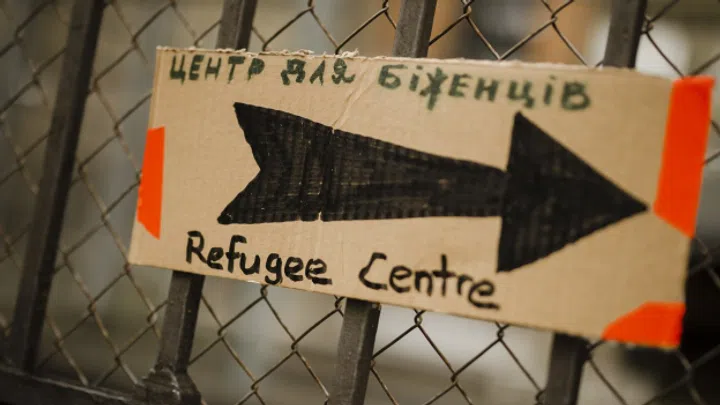 ЦЕНТР ДЛЯ БІЖЕНЦІВ
Refugee Centre